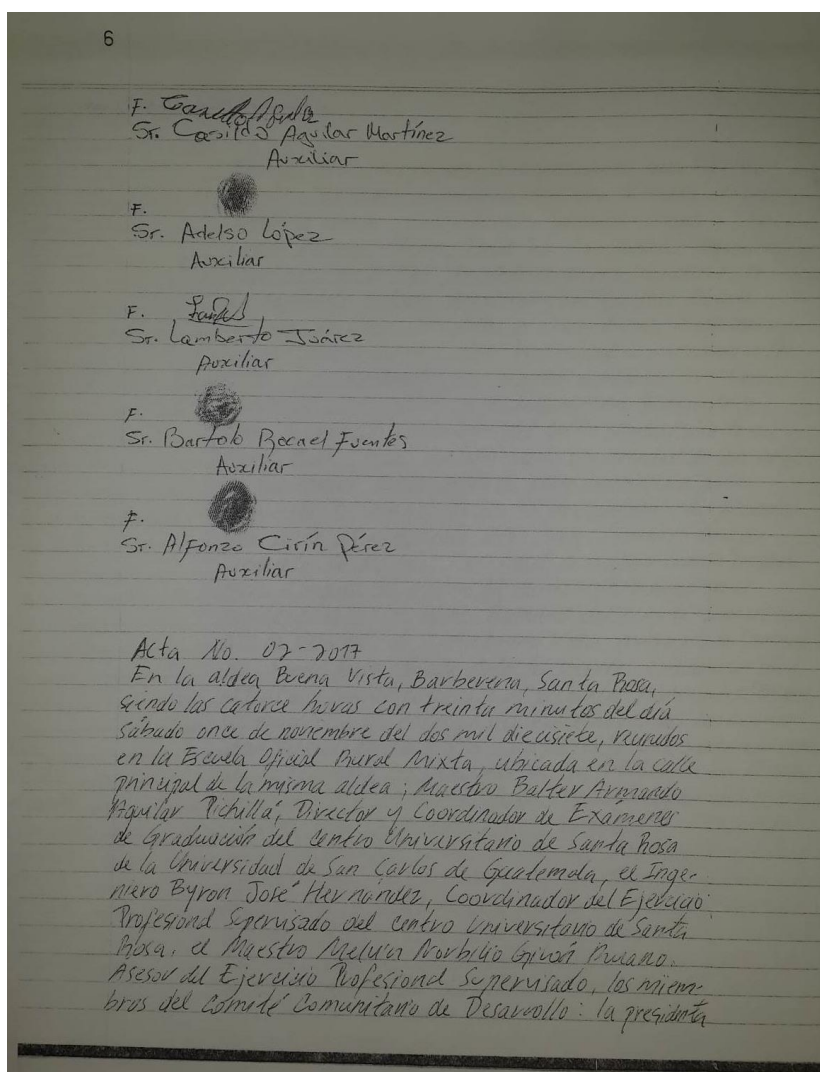 6
F.
Sr. Casildo Aguilar Martínez
Auxiliar
F.
Sr. Adelso López
Auxiliar
F.
Sr. Lamberto Juárez
Auxiliar
F.
Sr. Bartolo Fuentes
Auxiliar
F.
Sr. Alfonzo Cirín Pérez
Auxiliar
Acta No. 02-2017
En la aldea Buena Vista, Barberena, Santa Rosa,
siendo las catorce horas con treinta minutos del día
sábado once de noviembre del dos mil diecisiete, reunidos
en la Escuela Oficial Rural Mixta, ubicada en la calle
principal de la misma aldea; Maestro Balter Armando
Aguilar Pichillá, Director y Coordinador de Examenes
de Graduación del Centro Universitario de Santa Rosa
de la Universidad de San Carlos de Guatemala, el Inge-
niero Byron José Hernández, Coordinador del Ejercicio
Profesional Supervisado del Centro Universitario de Santa
Rosa, el Maestro Norbilio Girón
Asesor del Ejercicio Profesional Supervisado, los miem-
bros del Comité Comunitario de Desarrollo: la presidenta